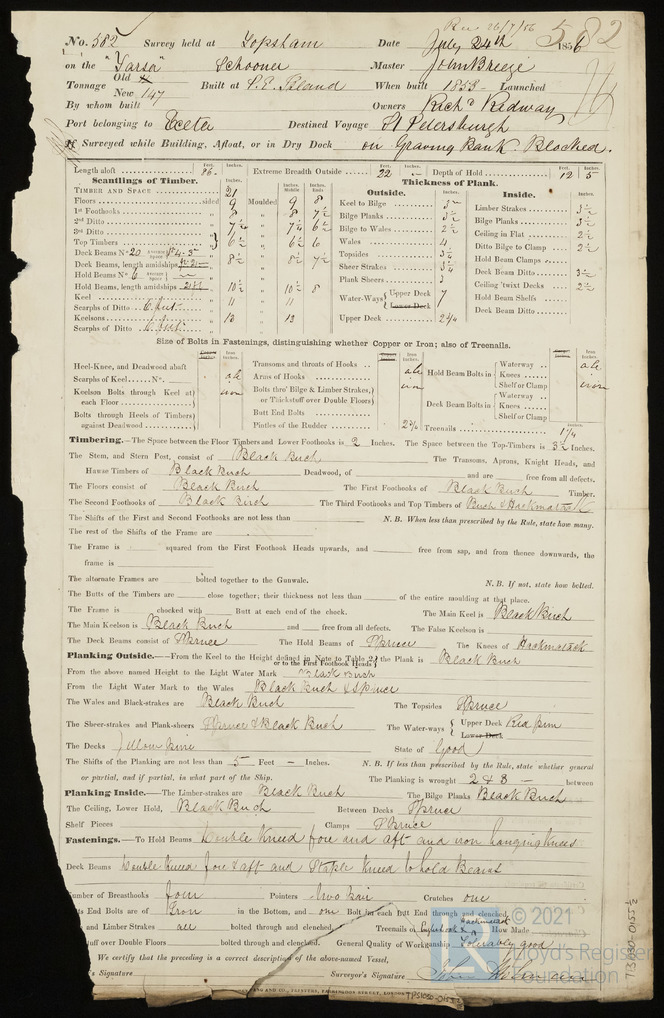 Rec 26/7/56 582
No. 582 Survey held at Topsham Date July 24th 1856
on the "Tarsa" Schooner Master John Breeze
Tonnage Old New 147 Built at P.E. Island When built 1853 - Launched
By whom built Owners Richd Redway
Port belonging to Exeter Destined Voyage St Petersburgh
If Surveyed while Building, Afloat, or in Dry Dock on Graving Bank. Blocked.
Length aloft 86. Extreme Breadth Outside 22 Depth of Hold 12 5
Scantlings of Timber. Thickness of Plank.
TIMBER AND SPACE 21 Outside. Inside.
Floors sided 9 Moulded 9 8 Keel to Bilge 3 Limber Strakes 3½
1st Foothooks 8 8 7½ Bilge Planks 3½ Bilge Planks 3½
2nd Ditto 7½ 7¼ 6½ Bilge to Wales 2½ Ceiling in Flat 2½
3rd Ditto Wales 4 Ditto Bilge to Clamp 2½
Top Timbers 6½ 6½ 6 Topsides 3¼ Hold Beam Clamps
Deck Beams No 20 Average Space Sheer Strakes 3¼ Deck Beam Ditto 3½
Deck Beams, length amidships 8½ 8½ 7½ Plank Sheers 3 Ceiling 'twixt Decks 2½
Hold Beams No 6 Average Space Water-Ways Upper Deck 7 Lower Deck Hold Beam Shelfs
Hold Beams, length amidships 10½ 10½ 8 Upper Deck 2¾ Deck Beam Ditto
Keel 11 11
Scarphs of Ditto 6 feet
Keelsons 12 12
Scarphs of Ditto 6 feet
Size of Bolts in Fastenings, distinguishing whether Copper or Iron; also of Treenails.
Heel-Knee, and Deadwood abaft all Transoms and throats of Hooks all Hold Beam Bolts in Waterway Knees Shelf or Clamp all
Scarphs of Keel No. Arms of Hooks iron iron
Keelson Bolts through Keel at each Floor iron Bolts thro' Bilge & Limber Strakes, or Thickstuff over Double Floors Deck Beam Bolts in Waterway Knees Shelf or Clamp
Bolts through Heels of Timbers against Deadwood Butt End Bolts
Pintles of the Rudder 2¾ Treenails 1¼
Timbering.—The Space between the Floor Timbers and Lower Foothooks is 2 Inches. The Space between the Top-Timbers is 3½ Inches.
The Stem, and Stern Post, consist of Black Birch The Transoms, Aprons, Knight Heads, and
Hawse Timbers of Black Birch Deadwood, of and are free from all defects.
The Floors consist of Black Birch The First Foothooks of Black Birch Timber.
The Second Foothooks of Black Birch The Third Foothooks and Top Timbers of Birch & Hackmatack
The Shifts of the First and Second Foothooks are not less than N. B. When less than prescribed by the Rule, state how many.
The rest of the Shifts of the Frame are
The Frame is squared from the First Foothook Heads upwards, and free from sap, and from thence downwards, the
frame is
The alternate Frames are bolted together to the Gunwale. N. B. If not, state how bolted.
The Butts of the Timbers are close together; their thickness not less than of the entire moulding at that place.
The Frame is chocked with Butt at each end of the chock. The Main Keel is Black Birch
The Main Keelson is Black Birch and free from all defects. The False Keelson is
The Deck Beams consist of Spruce The Hold Beams of Spruce The Knees of Hackmatack
Planking Outside.—From the Keel to the Height defined in Note to Table 2, or to the First Foothook Heads the Plank is Black Birch
From the above named Height to the Light Water Mark Black Birch
From the Light Water Mark to the Wales Black Birch & Spruce
The Wales and Black-strakes are Black Birch The Topsides Spruce
The Sheer-strakes and Plank-sheers Spruce & Black Birch The Water-ways Upper Deck Red Pine Lower Deck
The Decks Yellow Pine State of Good
The Shifts of the Planking are not less than 5 Feet — Inches. N. B. If less than prescribed by the Rule, state whether general
or partial, and if partial, in what part of the Ship. The Planking is wrought 2 & 3 — between
Planking Inside.—The Limber-strakes are Black Birch The Bilge Planks Black Birch
The Ceiling, Lower Hold, Black Birch Between Decks Spruce
Shelf Pieces Clamps Spruce
Fastenings.—To Hold Beams Double Kneed fore and aft and iron hanging knees
Deck Beams Double Kneed fore & aft and Staple Kneed to hold Beams
Number of Breasthooks four Pointers two pair Crutches one
Butts End Bolts are of Iron in the Bottom, and one Bolt in each Butt End through and clenched.
and Limber Strakes all bolted through and clenched. Treenails of Hackmatack How Made
stuff over Double Floors bolted through and clenched. General Quality of Workmanship Tolerably good
We certify that the preceding is a correct description of the above-named Vessel,
's Signature Surveyor's Signature
AND CO., PRINTERS, FARRINGDON STREET, LONDON
TPS1050-0155½
TPS1050-0155½
© 2021
Lloyd's Register
Foundation